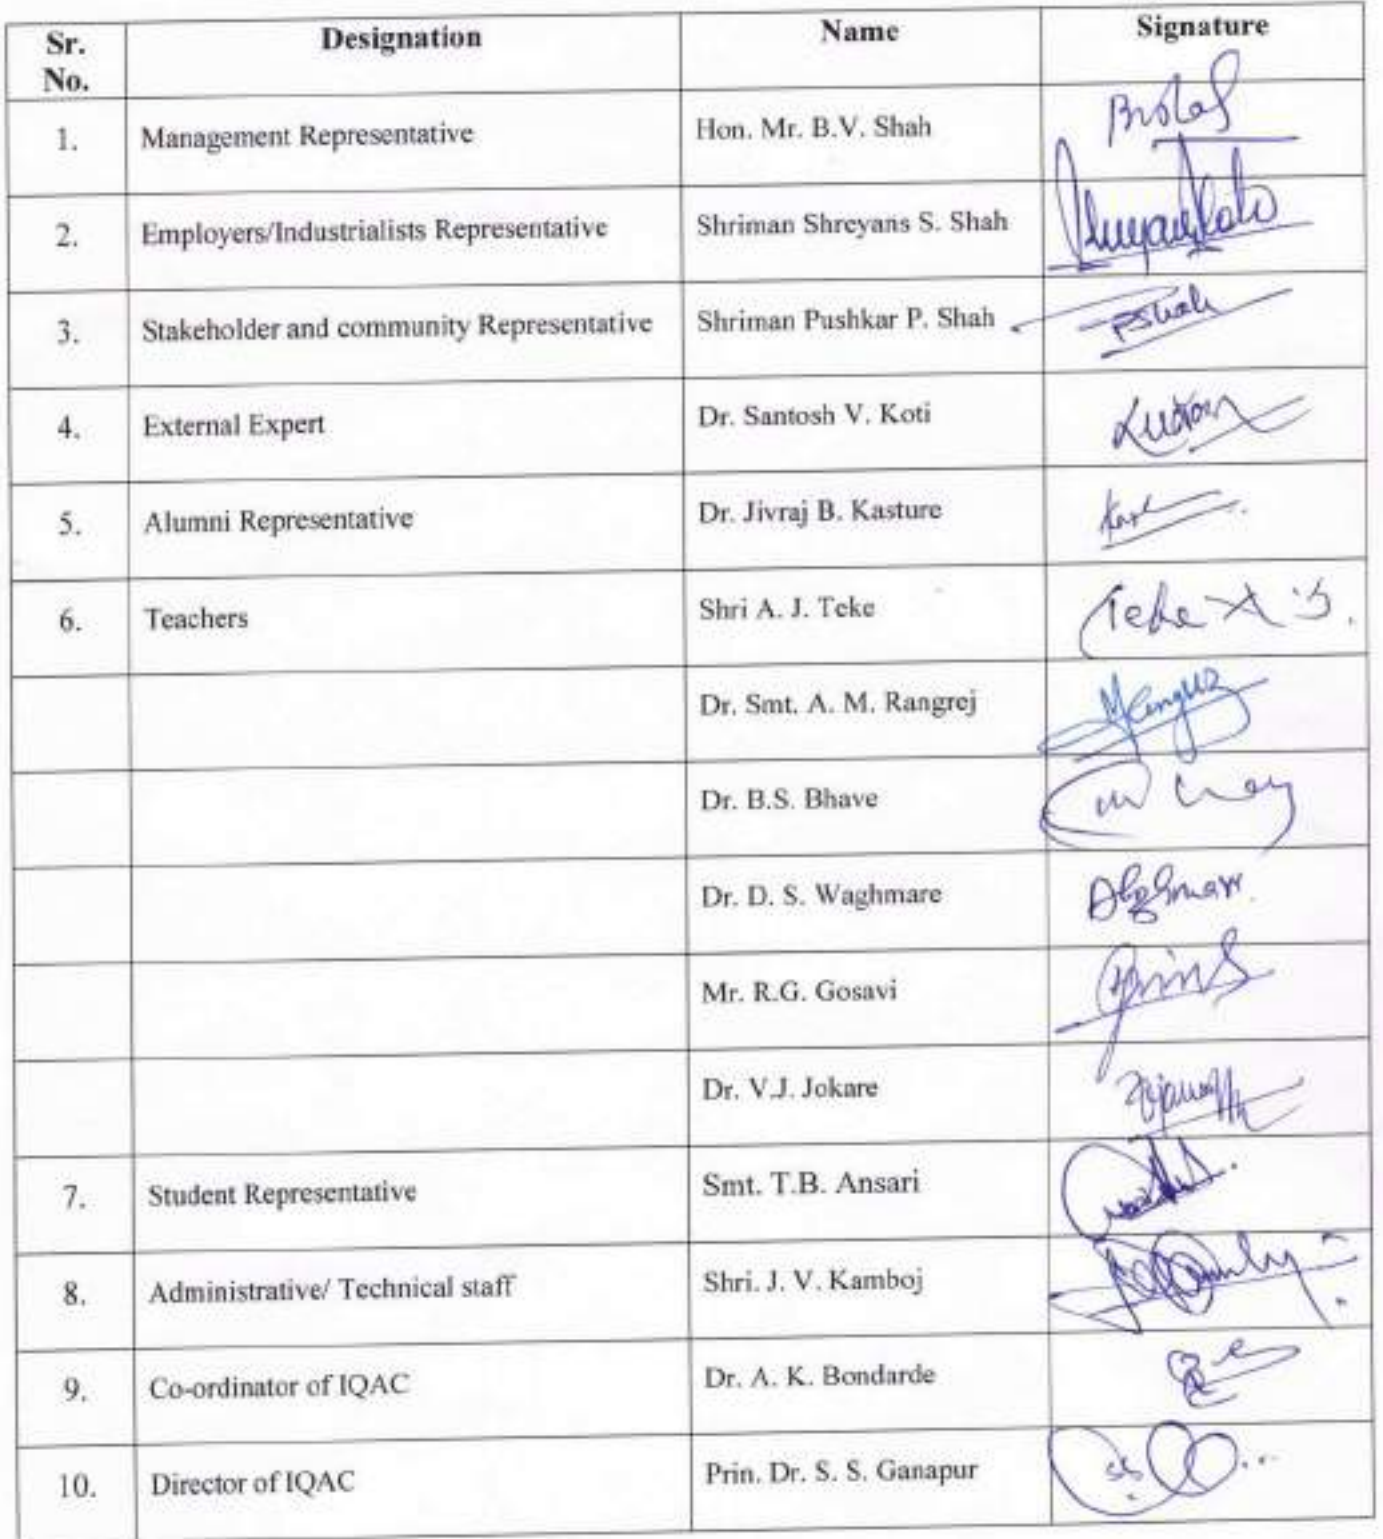 Sr. No. Designation Name Signature
1. Management Representative Hon. Mr. B.V. Shah
2. Employers/Industrialists Representative Shriman Shreyans S. Shah
3. Stakeholder and community Representative Shriman Pushkar P. Shah PShah
4. External Expert Dr. Santosh V. Koti
5. Alumni Representative Dr. Jivraj B. Kasture
6. Teachers Shri A. J. Teke Teke A J.
Dr. Smt. A. M. Rangrej
Dr. B.S. Bhave
Dr. D. S. Waghmare
Mr. R.G. Gosavi
Dr. V.J. Jokare
7. Student Representative Smt. T.B. Ansari
8. Administrative/ Technical staff Shri. J. V. Kamboj
9. Co-ordinator of IQAC Dr. A. K. Bondarde
10. Director of IQAC Prin. Dr. S. S. Ganapur